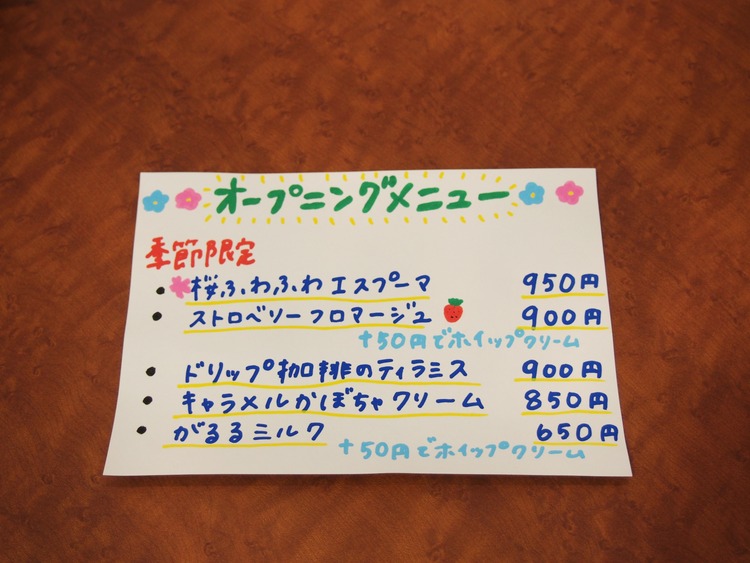 オープニングメニュー
季節限定
・桜ふわふわエスプーマ 950円
・ストロベリーフロマージュ 900円
+50円でホイップクリーム
・ドリップ珈琲のティラミス 900円
・キャラメルかぼちゃクリーム 850円
・がるるミルク 650円
+50円でホイップクリーム